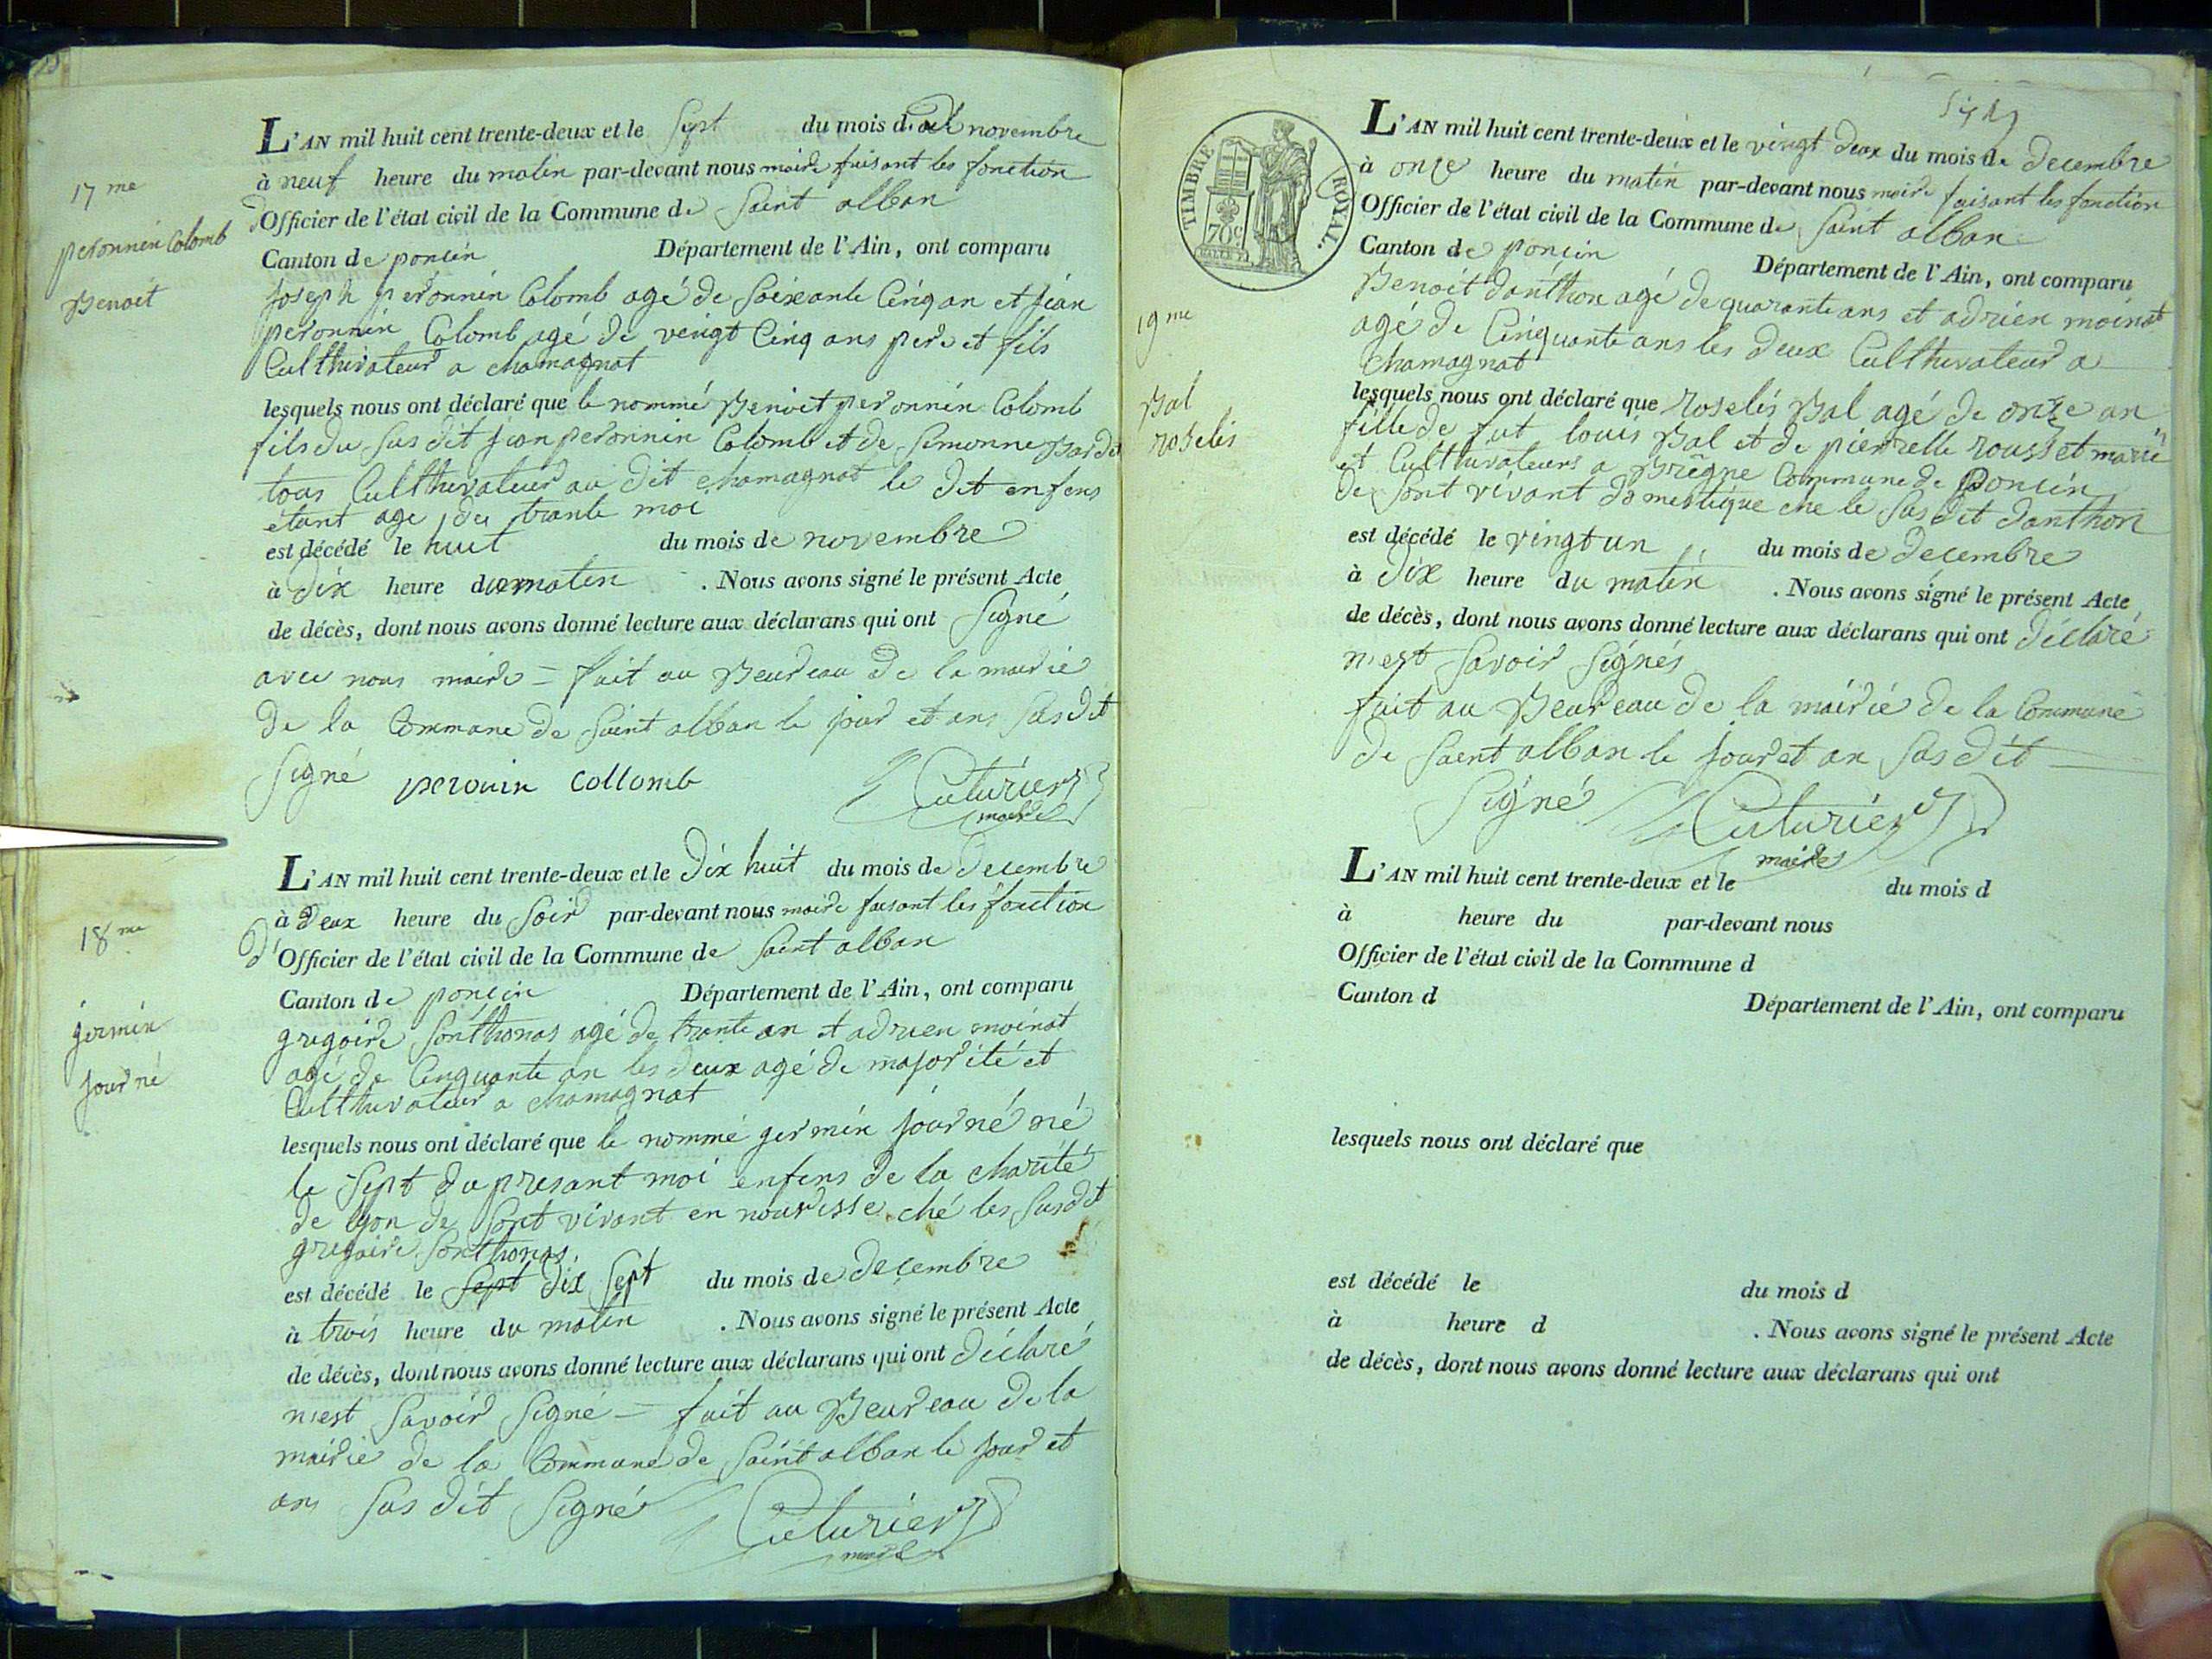 17me
peronnin Colomb
Benoit
L'AN mil huit cent trente-deux et le Sept du mois d novembre
à neuf heure du matin par-devant nous maire faisant les fonction
d'Officier de l'état civil de la Commune de Saint alban
Canton de poncin Département de l'Ain, ont comparu
Joseph peronnin Colomb agé de Soixante Cinq an et jean
peronnin Colomb agé de veingt Cinq ans pere et fils
Culthivateur a chamagnat
lesquels nous ont déclaré que le nommé Benoit peronnin Colomb
fils du Sus dit jean peronnin Colomb et de Simonne
tous Culthivateur au dit chamagnat le dit enfens
étant agé de trante moi
est décédé le huit du mois de novembre
à dix heure du matin . Nous avons signé le présent Acte
de décès, dont nous avons donné lecture aux déclarans qui ont Signé
avec nous maire = fait au Beureau de la mairie
de la Commune de Saint alban le jour et ans Susdit
Signé perouin collomb Cuturier
maire
18me
germin
journé
L'AN mil huit cent trente-deux et le Dix huit du mois de Decembre
à Deux heure du Soir par-devant nous maire faisant les fonction
d'Officier de l'état civil de la Commune de Saint alban
Canton de poncin Département de l'Ain, ont comparu
gregoire Sonthonas agé de trante an et adrien moinat
agé de Cinquante an les deux agé de majorité et
Culthivateur a chamagnat
lesquels nous ont déclaré que le nommé germin journé né
le Sept du presant moi enfens de la charité
de lyon de Sont vivant en nourisse ché les Susdit
gregoire Sonthonas
est décédé le Sept Dix Sept du mois de decembre
à trois heure du matin . Nous avons signé le présent Acte
de décès, dont nous avons donné lecture aux déclarans qui ont déclaré
n'est Savoir Signé = fait au Beureau de la
mairie de la Commune de Saint alban le jour et
ans Sus dit Signé Cuturier
maire
TIMBRE ROYAL.
70c
19me
Bal
roselis
L'AN mil huit cent trente-deux et le vingt Deux du mois de Decembre
à onze heure du matin par-devant nous maire faisant les fonction
Officier de l'état civil de la Commune de Saint alban
Canton de poncin Département de l'Ain, ont comparu
Benoit danthon agé de quarante ans et adrien moinat
agé de Cinquante ans les deux Culthivateur a
chamagnat
lesquels nous ont déclaré que roselis Bal agé de onze an
fille de fut louis Bal et de pierrette rousset marié
et Culthivateurs a Breigne Commune de Poncin
de Sont vivant domestique ché le Sus dit danthon
est décédé le vingt un du mois de decembre
à dix heure du matin . Nous avons signé le présent Acte
de décès, dont nous avons donné lecture aux déclarans qui ont déclaré
n'est Savoir Signés
fait au Beureau de la mairie de la Commune
de Saint alban le jour et an Sus dit
Signé Cuturier
maire
L'AN mil huit cent trente-deux et le du mois d
à heure du par-devant nous
Officier de l'état civil de la Commune d
Canton d Département de l'Ain, ont comparu
lesquels nous ont déclaré que
est décédé le du mois d
à heure d . Nous avons signé le présent Acte
de décès, dont nous avons donné lecture aux déclarans qui ont